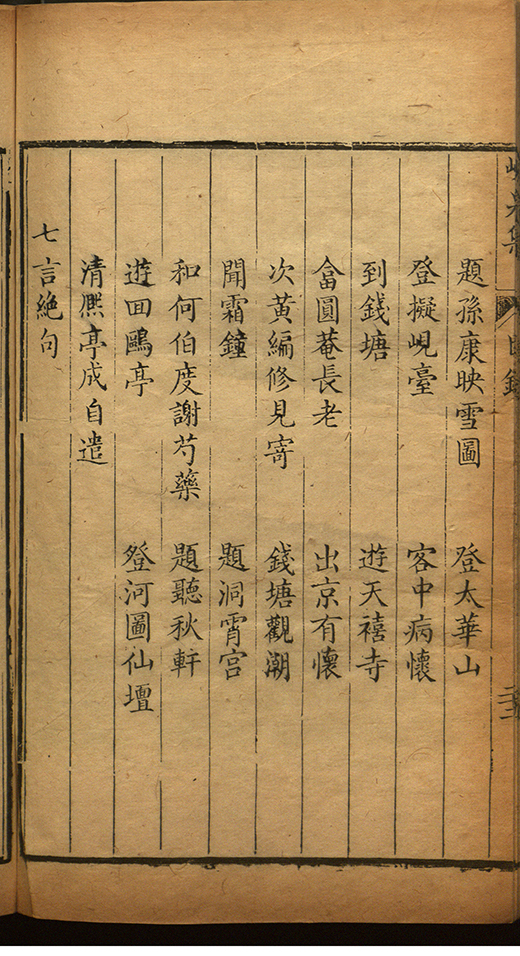 題孫康映雪圖 登太華山
登擬峴臺 客中病懷
到錢塘 遊天禧寺
畣圓菴長老 出京有懷
次黄編修見寄 錢塘觀潮
聞霜鐘 題洞霄宫
和何伯度謝芍藥 題聽秋軒
遊田鷗亭 登河圖仙壇
清熈亭成自遣
七言絶句